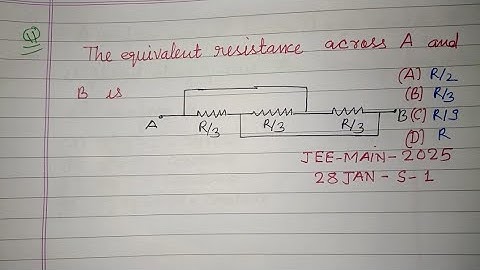 Q)
The equivalent resistance across A and
B is
(A) R/2
(B) R/3
(C) R/9
(D) R
A R/3 R/3 R/3 B
JEE-MAIN-2025
28 JAN-S-1